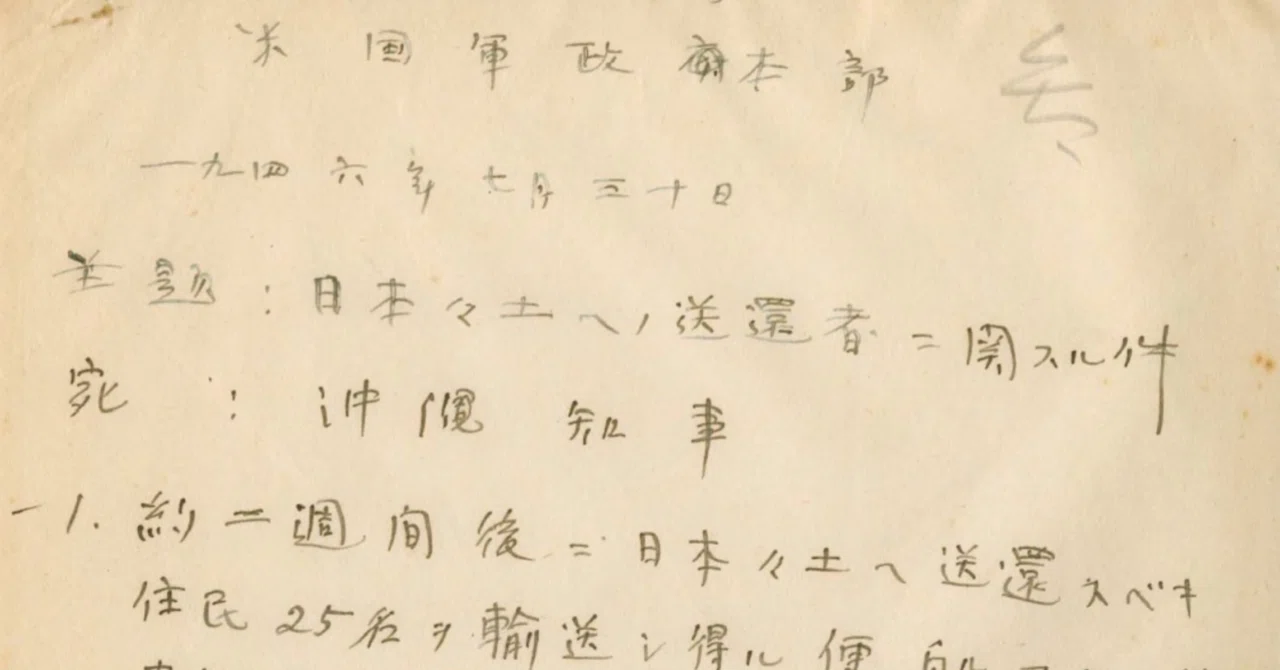 米国軍政府本部
一九四六年七月三十日
主題:日本々土ヘノ送還者ニ関スル件
宛:沖縄知事
一1. 約二週間後ニ日本々土ヘ送還スベキ
住民25名ヲ輸送シ得ル便船